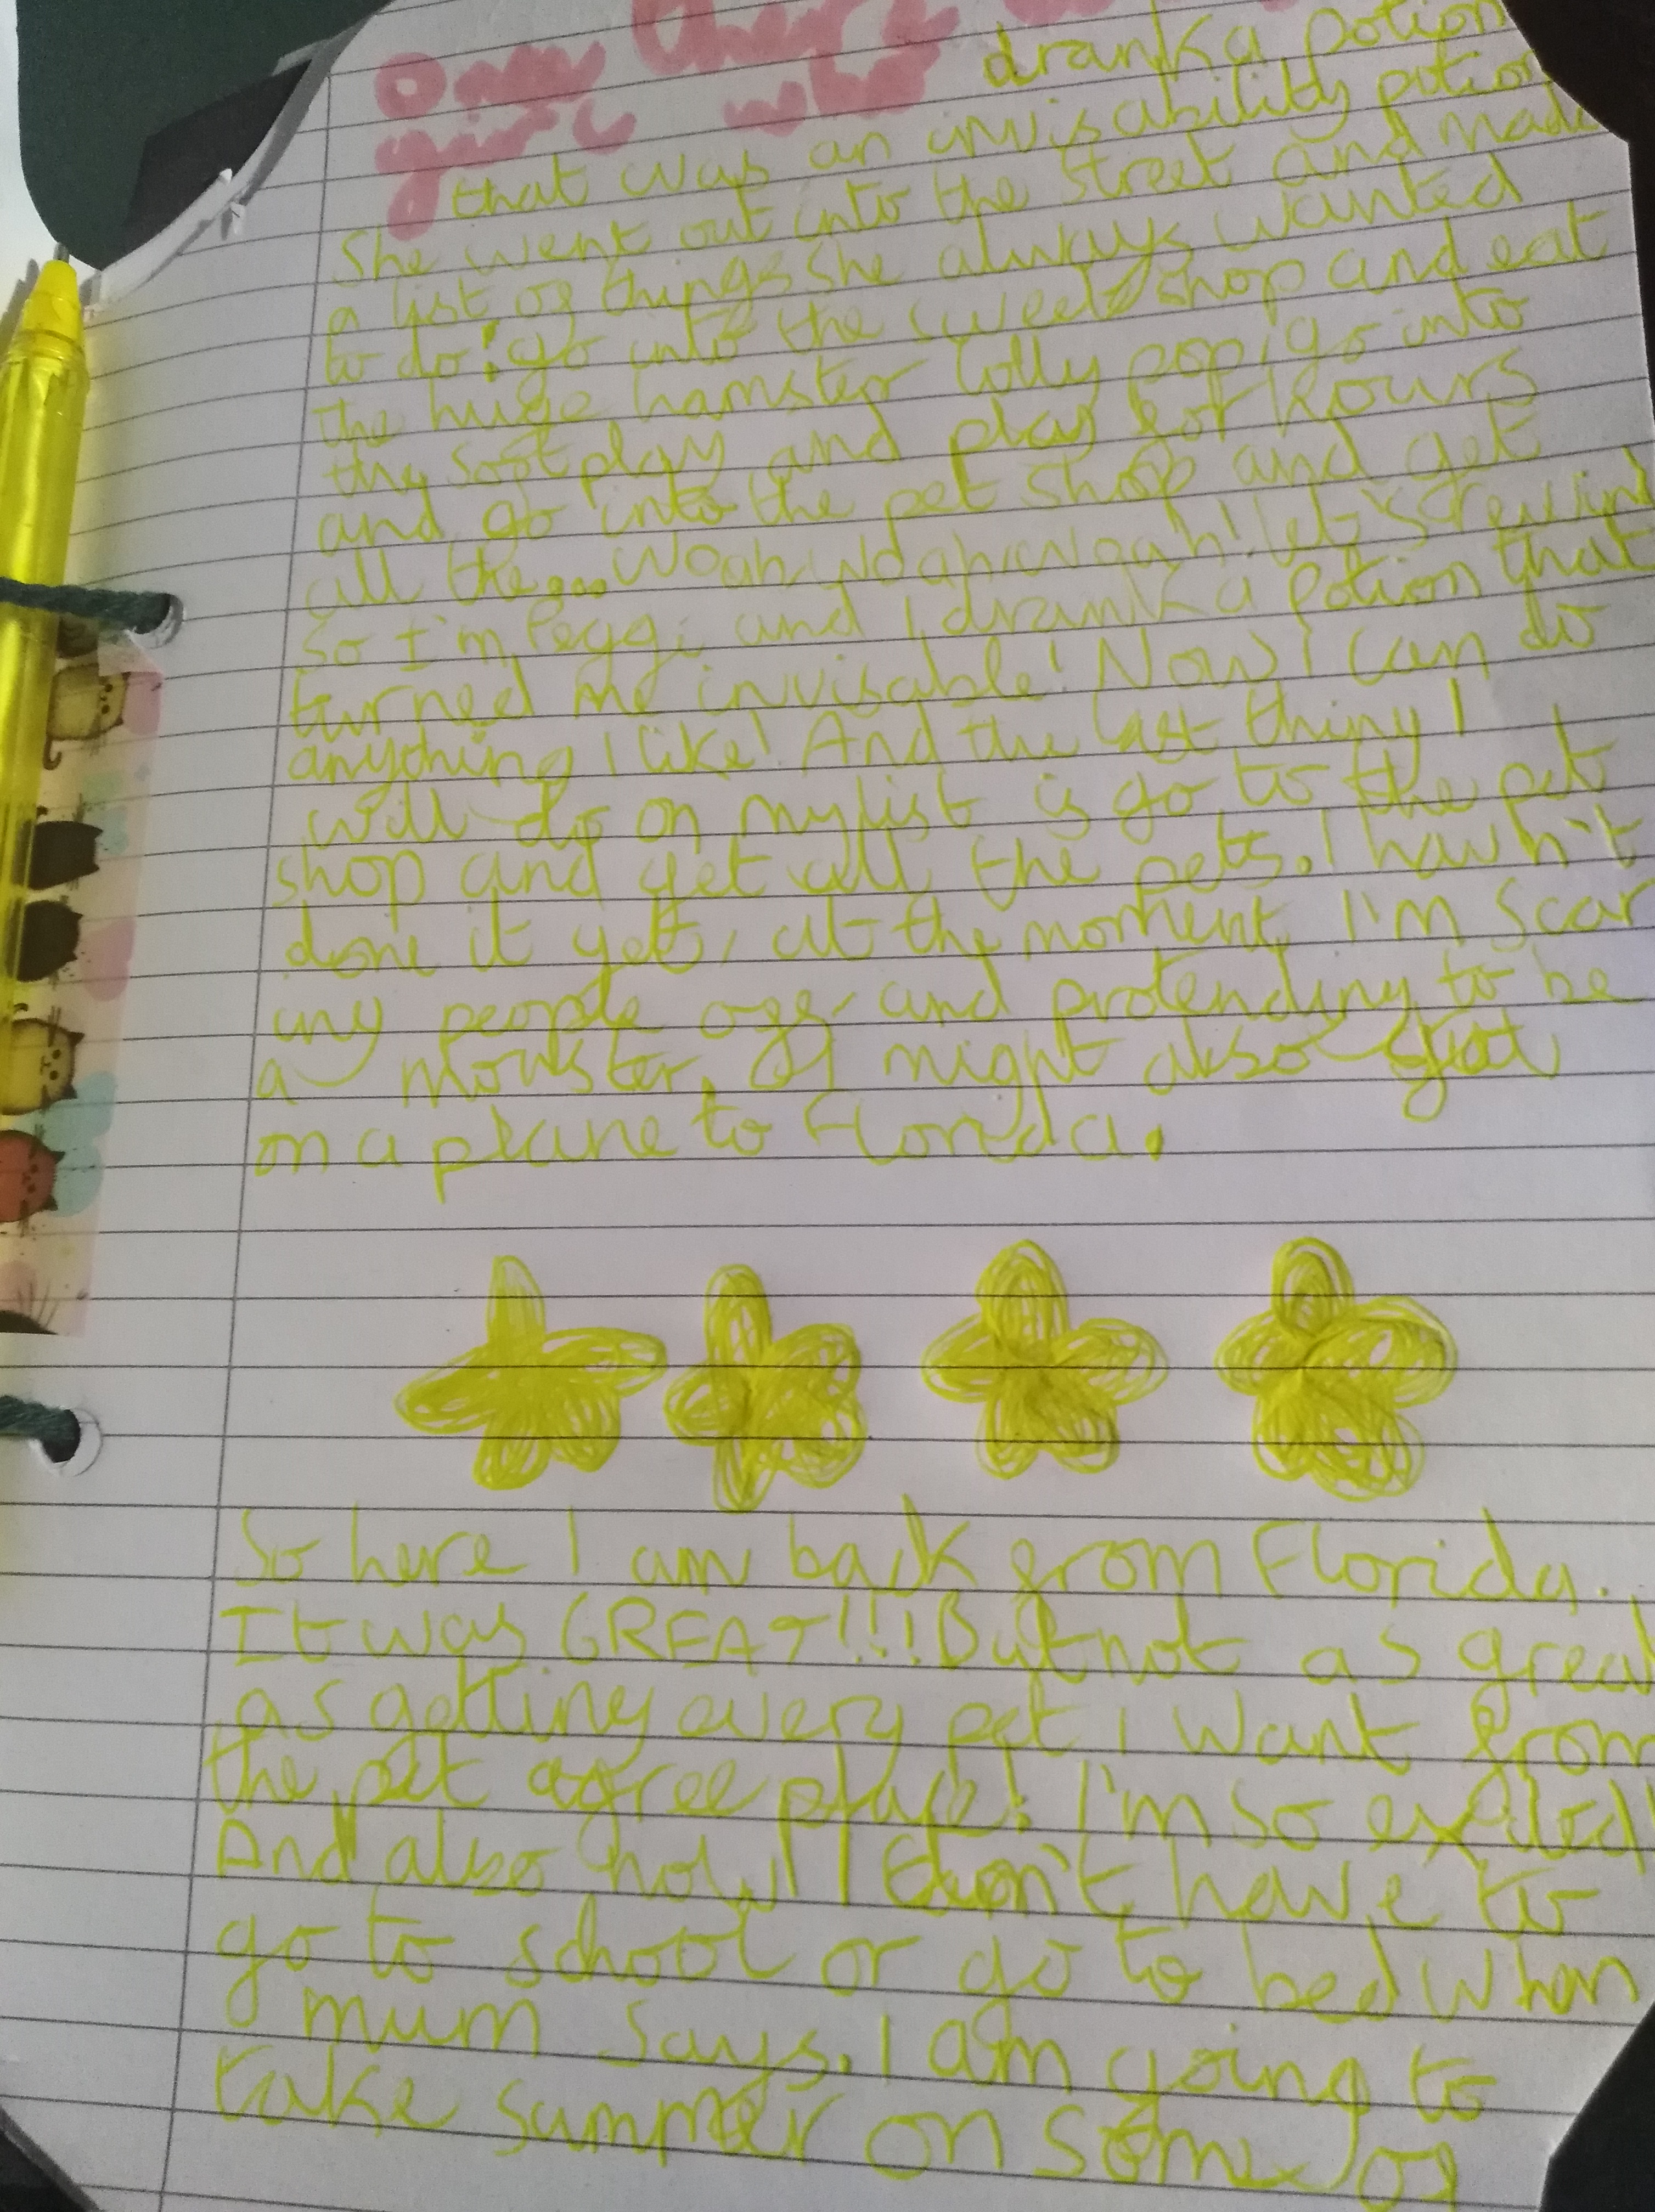 Once there was a
girl who drank a potion
that was an invisability potion
She went out into the street and made
a list of things she always wanted
to do: go into the sweet shop and eat
the huge hamster lolly pop, go into
the soft play and play for hours
and go into the pet shop and get
all the... Woah, Woah, Woah! let's rewind
So I'm Peggi and I drank a potion that
turned me invisable! Now I can do
anything I like! And the last thing I
will do on my list is go to the pet
shop and get all the pets. I havn't
done it yet, at the moment I'm scar
ing people off and pretending to be
a monster. I might also get
on a plane to Florida.
So here I am back from Florida.
It was GREAT!!! But not as great
as getting every pet I want from
the pet place! I'm so exited!
And also now I don't have to
go to school or go to bed when
mum says. I am going to
take summer on some of